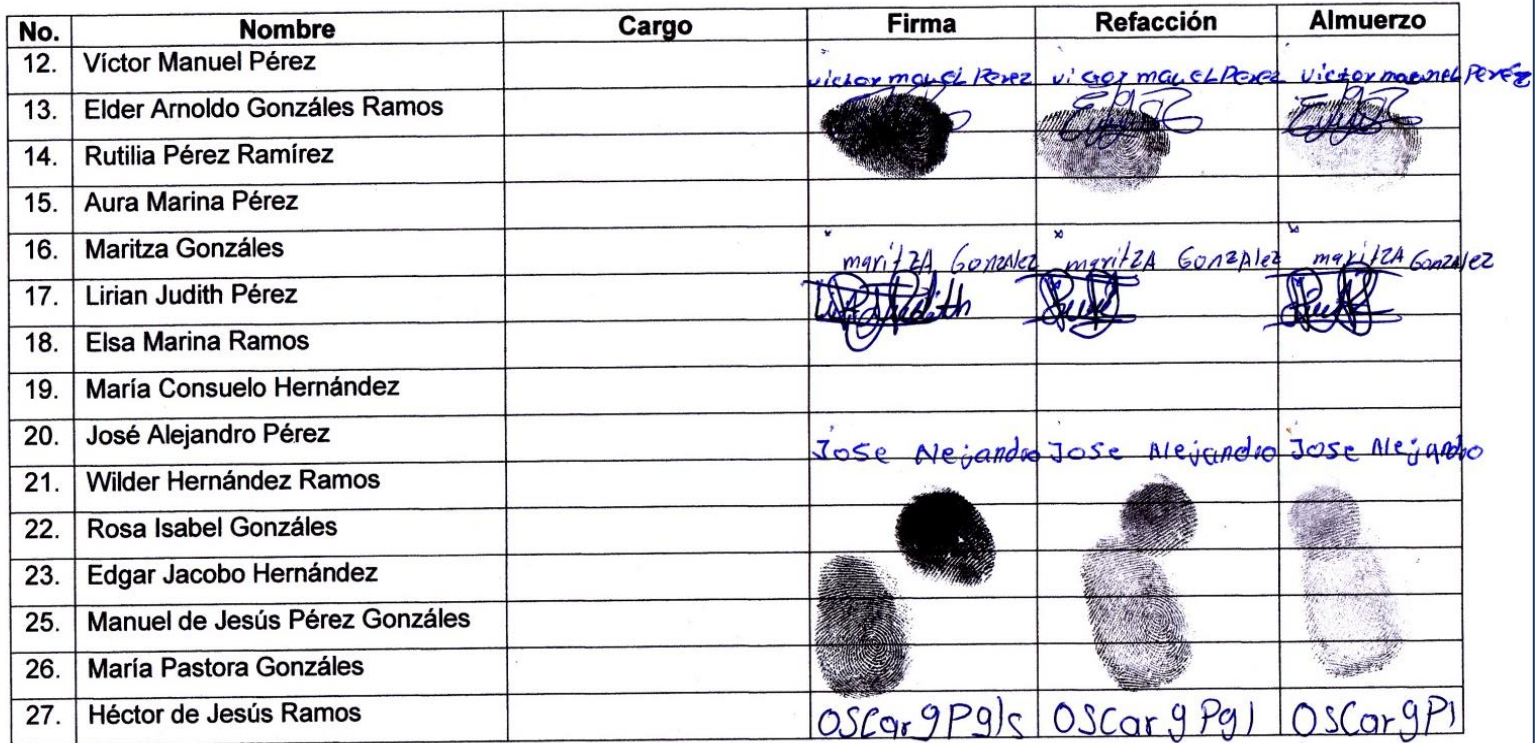 No. Nombre Cargo Firma Refacción Almuerzo
12. Víctor Manuel Pérez victor manuel Perez victor manuel Perez victor manuel Perez
13. Elder Arnoldo Gonzáles Ramos
14. Rutilia Pérez Ramírez
15. Aura Marina Pérez
16. Maritza Gonzáles maritzA Gonzalez maritzA GonzAlez maritzA Gonzalez
17. Lirian Judith Pérez
18. Elsa Marina Ramos
19. María Consuelo Hernández
20. José Alejandro Pérez Jose Alejandro Jose Alejandro Jose Alejandro
21. Wilder Hernández Ramos
22. Rosa Isabel Gonzáles
23. Edgar Jacobo Hernández
25. Manuel de Jesús Pérez Gonzáles
26. María Pastora Gonzáles
27. Héctor de Jesús Ramos OSCar OSCar OSCar